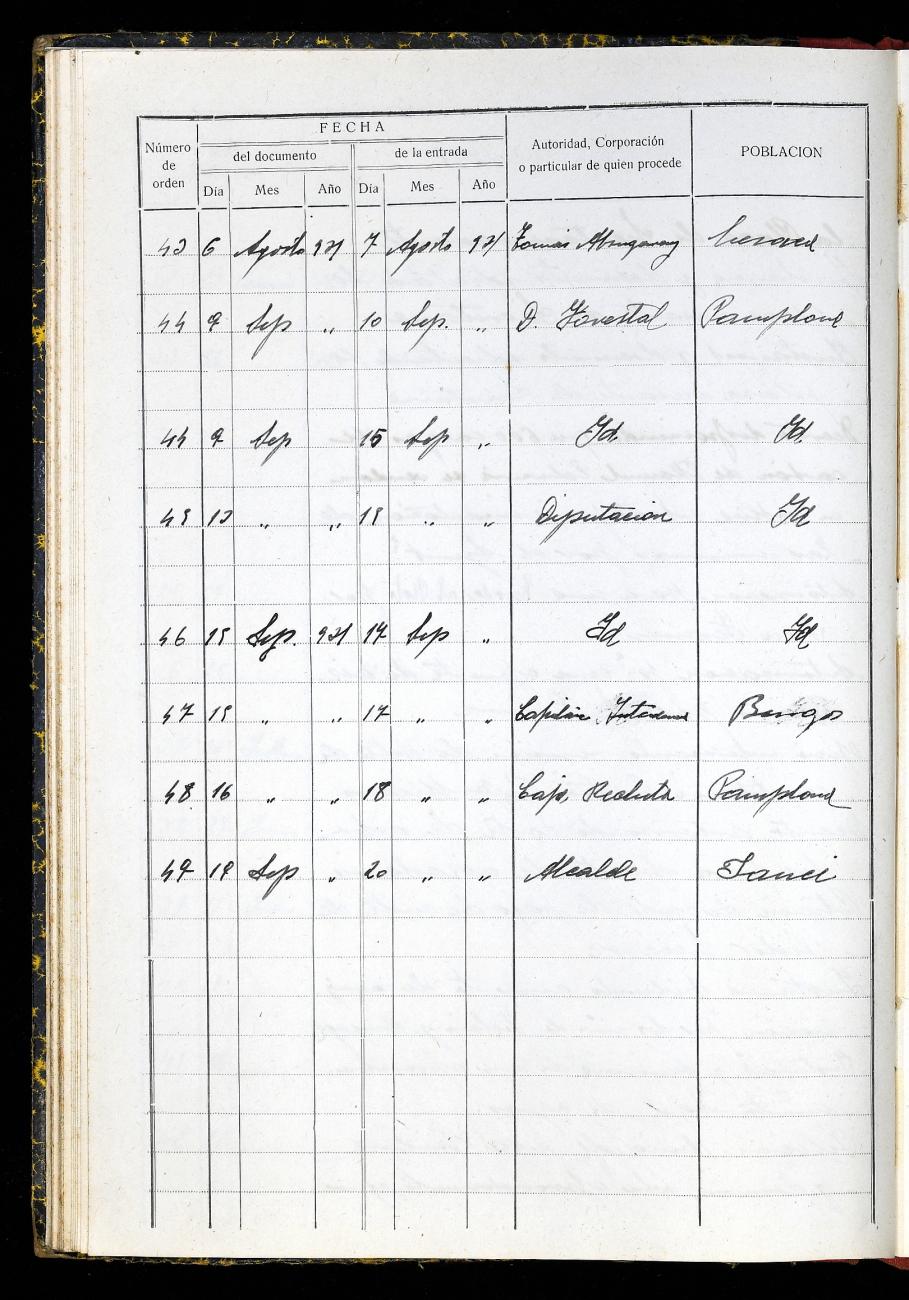 FECHA
Número de orden
del documento
de la entrada
Autoridad, Corporación o particular de quien procede
POBLACION
Día Mes Año Día Mes Año
43 6 Agosto 931 7 Agosto 931 Tomás
44 9 Sep „ 10 Sep. „ D. Forestal Pamplona
44 9 Sep 15 Sep „ Id. Id.
45 13 „ „ 15 „ „ Diputacion Id
46 15 Sep. 931 17 Sep „ Id Id
47 15 „ „ 17 „ „ Capitán Burgos
48 16 „ „ 18 „ „ Caja Recluta Pamplona
49 19 Sep „ 20 „ „ Alcalde Janci